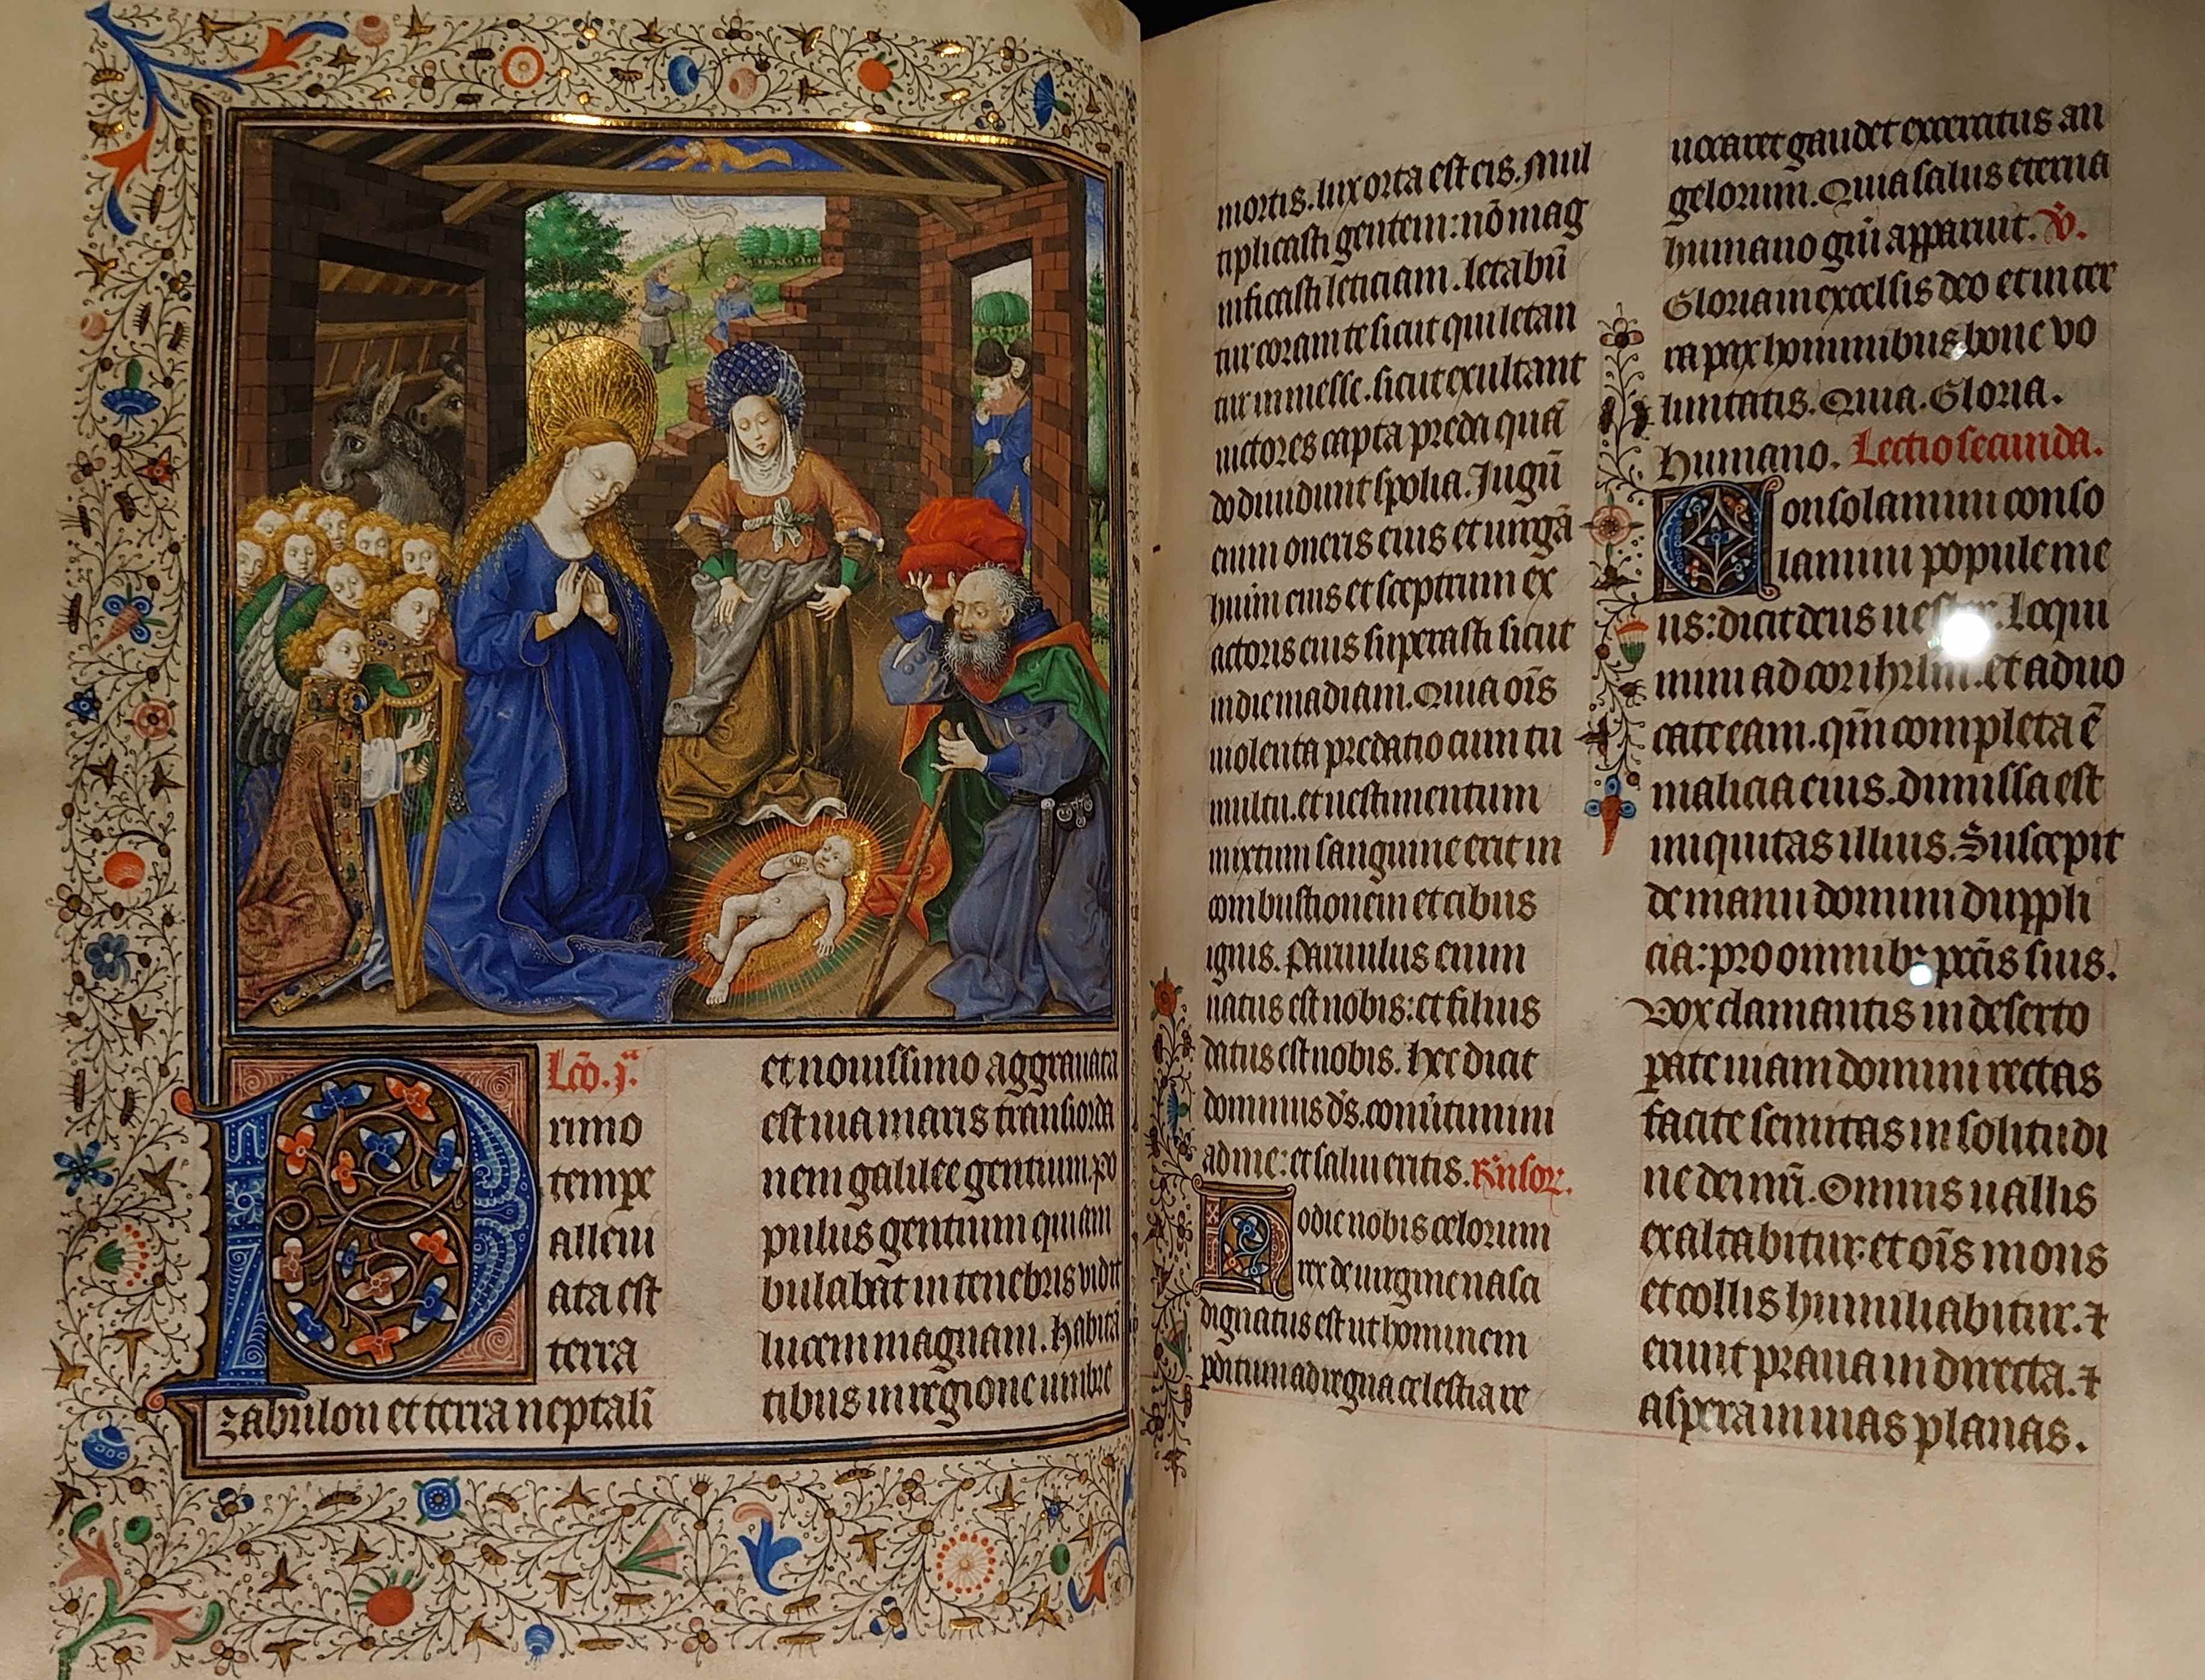 Lcō. j.ª
rimo
tempe
alleui
ata est
terra
zabulon et terra neptali
et nouissimo aggrauata
est uia maris transiorda
nem galilee gentium. po
pulus gentium qui am
bulabat in tenebris vidit
lucem magnam. habitā
tibus in regione umbre
mortis. lux orta est eis. Mul
tiplicasti gentem: nō mag
nificasti leticiam. letabū
tur coram te sicut qui letan
tur in messe. sicut exultant
uictores capta preda quā
do diuidunt spolia. Jugū
enim oneris eius et uirgā
humī eius et sceptrum ex
actoris eius superasti sicut
in die madiam. Quia oīs
uiolenta predatio cum tu
multu. et uestimentum
mixtum sanguine erit in
combustionem et cibus
ignis. Paruulus enim
natus est nobis: et filius
datus est nobis. hec dicit
dominus ds̄. conūtimini
ad me: et salui eritis.
Hodie nobis celorum
rex de uirgine nasci
dignatus est ut hominem
pditum ad regna celestia re
uocaret gaudet exercitus an
gelorum. Quia salus eterna
humano gn̄i apparuit. V̄.
Gloria in excelsis deo et in ter
ra pax hominibus bone vo
luntatis. Quia. Gloria.
humano. Lectio secunda.
Consolamini conso
lamini popule me
us: dicit deus uester. Loqui
mini ad cor ihrl̄m. et aduo
cate eam. qm̄ completa ē
malicia eius. dimissa est
iniquitas illius. Suscepit
de manu domini duppli
cia: pro omnibꝫ pctīs suis.
Vox clamantis in deserto
pate uiam domini rectas
facite semitas in solitudi
ne dei nrī. Omnis uallis
exaltabitur: et oīs mons
et collis humiliabitur. ⁊
erunt praua in directa. ⁊
aspera in uias planas.